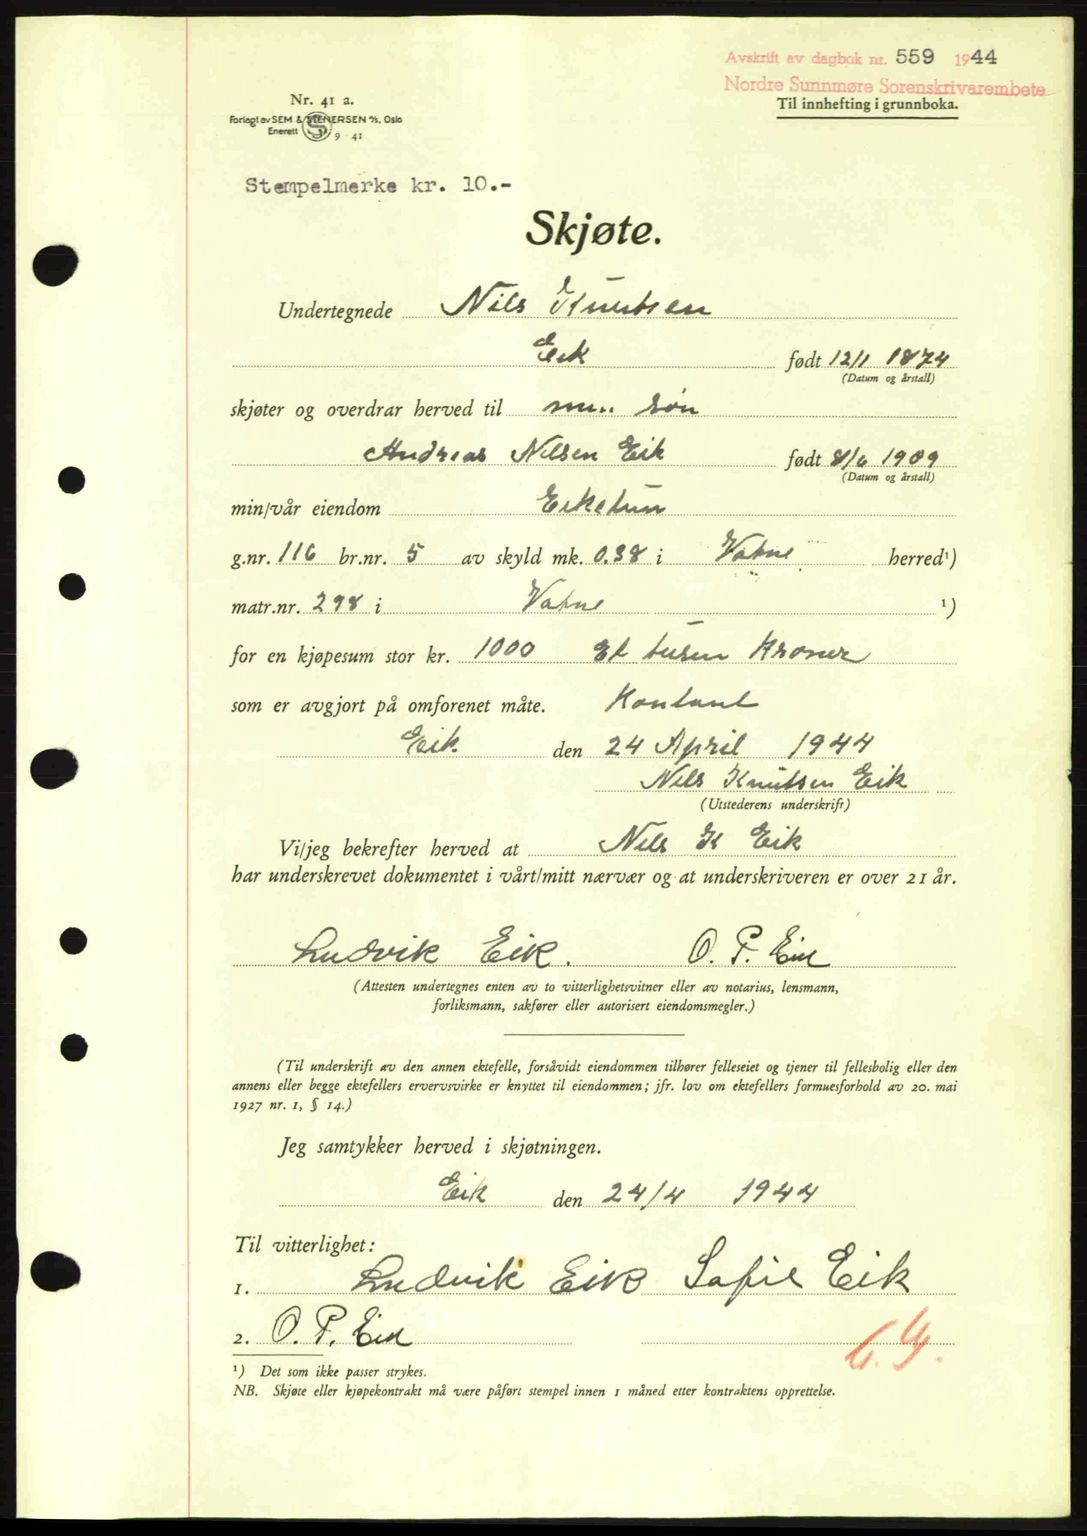 Avskrift av dagbok nr. 559 1944
Nordre Sunnmøre Sorenskrivarembete
Til innhefting i grunnboka.
Nr. 41 a.
Forlagt av SEM & STENERSEN A/S, Oslo
Enerett S 9 41
Stempelmerke kr. 10.-
Skjøte.
Undertegnede Nils Knutsen
Eik født 12/1 1874
(Datum og årstall)
skjøter og overdrar herved til min søn
Andreas Nilsen Eik født 8/6 1909
(Datum og årstall)
min/vår eiendom Eiketun
g.nr. 116 br.nr. 5 av skyld mk. 0.38 i Vatne herred¹)
matr.nr. 298 i Vatne ¹)
for en kjøpesum stor kr. 1000 Et tusen Kroner
som er avgjort på omforenet måte. Kontant
Eik den 24 April 1944
Nils Knutsen Eik
(Utstederens underskrift)
Vi/jeg bekrefter herved at Nils K Eik
har underskrevet dokumentet i vårt/mitt nærvær og at underskriveren er over 21 år.
Ludvik Eik. O. P. Eik
(Attesten undertegnes enten av to vitterlighetsvitner eller av notarius, lensmann,
forliksmann, sakfører eller autorisert eiendomsmegler.)
(Til underskrift av den annen ektefelle, forsåvidt eiendommen tilhører felleseiet og tjener til fellesbolig eller den
annens eller begge ektefellers ervervsvirke er knyttet til eiendommen; jfr. lov om ektefellers formuesforhold av 20. mai
1927 nr. 1, § 14.)
Jeg samtykker herved i skjøtningen.
Eik den 24/4 1944
Til vitterlighet:
1. Ludvik Eik Sofie Eik
2. O. P. Eik
¹) Det som ikke passer strykes.
NB. Skjøte eller kjøpekontrakt må være påført stempel innen 1 måned etter kontraktens opprettelse.